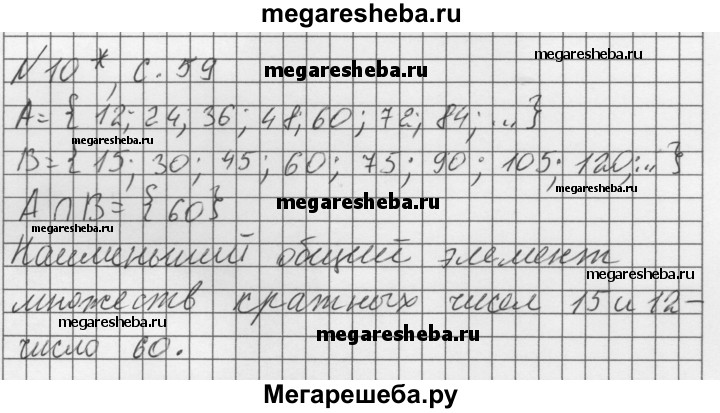 megaresheba.ru
№10*, с. 59
megaresheba.ru
megaresheba.ru
A = { 12; 24; 36; 48; 60; 72; 84; ... }
megaresheba.ru
megaresheba.ru
B = { 15; 30; 45; 60; 75; 90; 105; 120; .. }
megaresheba.ru
A ∩ B = { 60 }
megaresheba.ru
megaresheba.ru
Наименьший общий элемент
megaresheba.ru
множеств кратных чисел 15 и 12 -
megaresheba.ru
megaresheba.ru
число 60.
Мегарешеба.ру